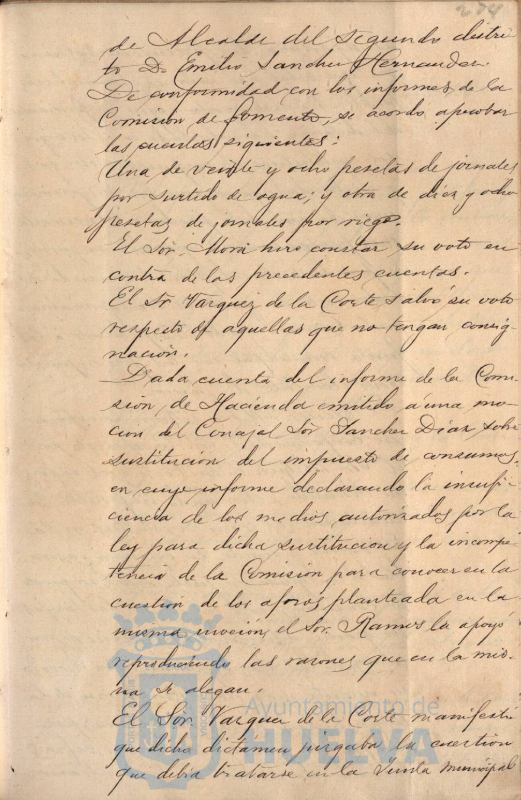 274
de Alcalde del segundo distri-
to D. Emilio Sanchez Hernandez.
De conformidad con los informes de la
Comisión de fomento, se acordó aprobar
las cuentas siguientes:
Una de veinte y ocho pesetas de jornales
por surtido de agua; y otra de diez y ocho
pesetas de jornales por riego.
El Sor. Mora hizo constar su voto en
contra de las precedentes cuentas.
El Sr Vazquez de la Corte salvó su voto
respecto de aquellas que no tengan consig-
nación.
Dada cuenta del informe de la Comi-
sión de Hacienda emitido á una mo-
cion del Concejal Sor Sanchez Diaz sobre
sustitucion del impuesto de consumos,
en cuyo informe declarando la insufi-
ciencia de los medios autorizados por la
ley para dicha sustitucion y la incompe-
tencia de la Comision para conocer en la
cuestión de los aforos planteada en la
misma moción, el Sor. Ramos la apoyó
reproduciendo las razones que en la mis-
ma se alegan.
El Sor. Vazquez de la Corte manifestó
que dicho dictámen juzgaba la cuestion
que debia tratarse en la Junta municipal
Ayuntamiento de
HUELVA